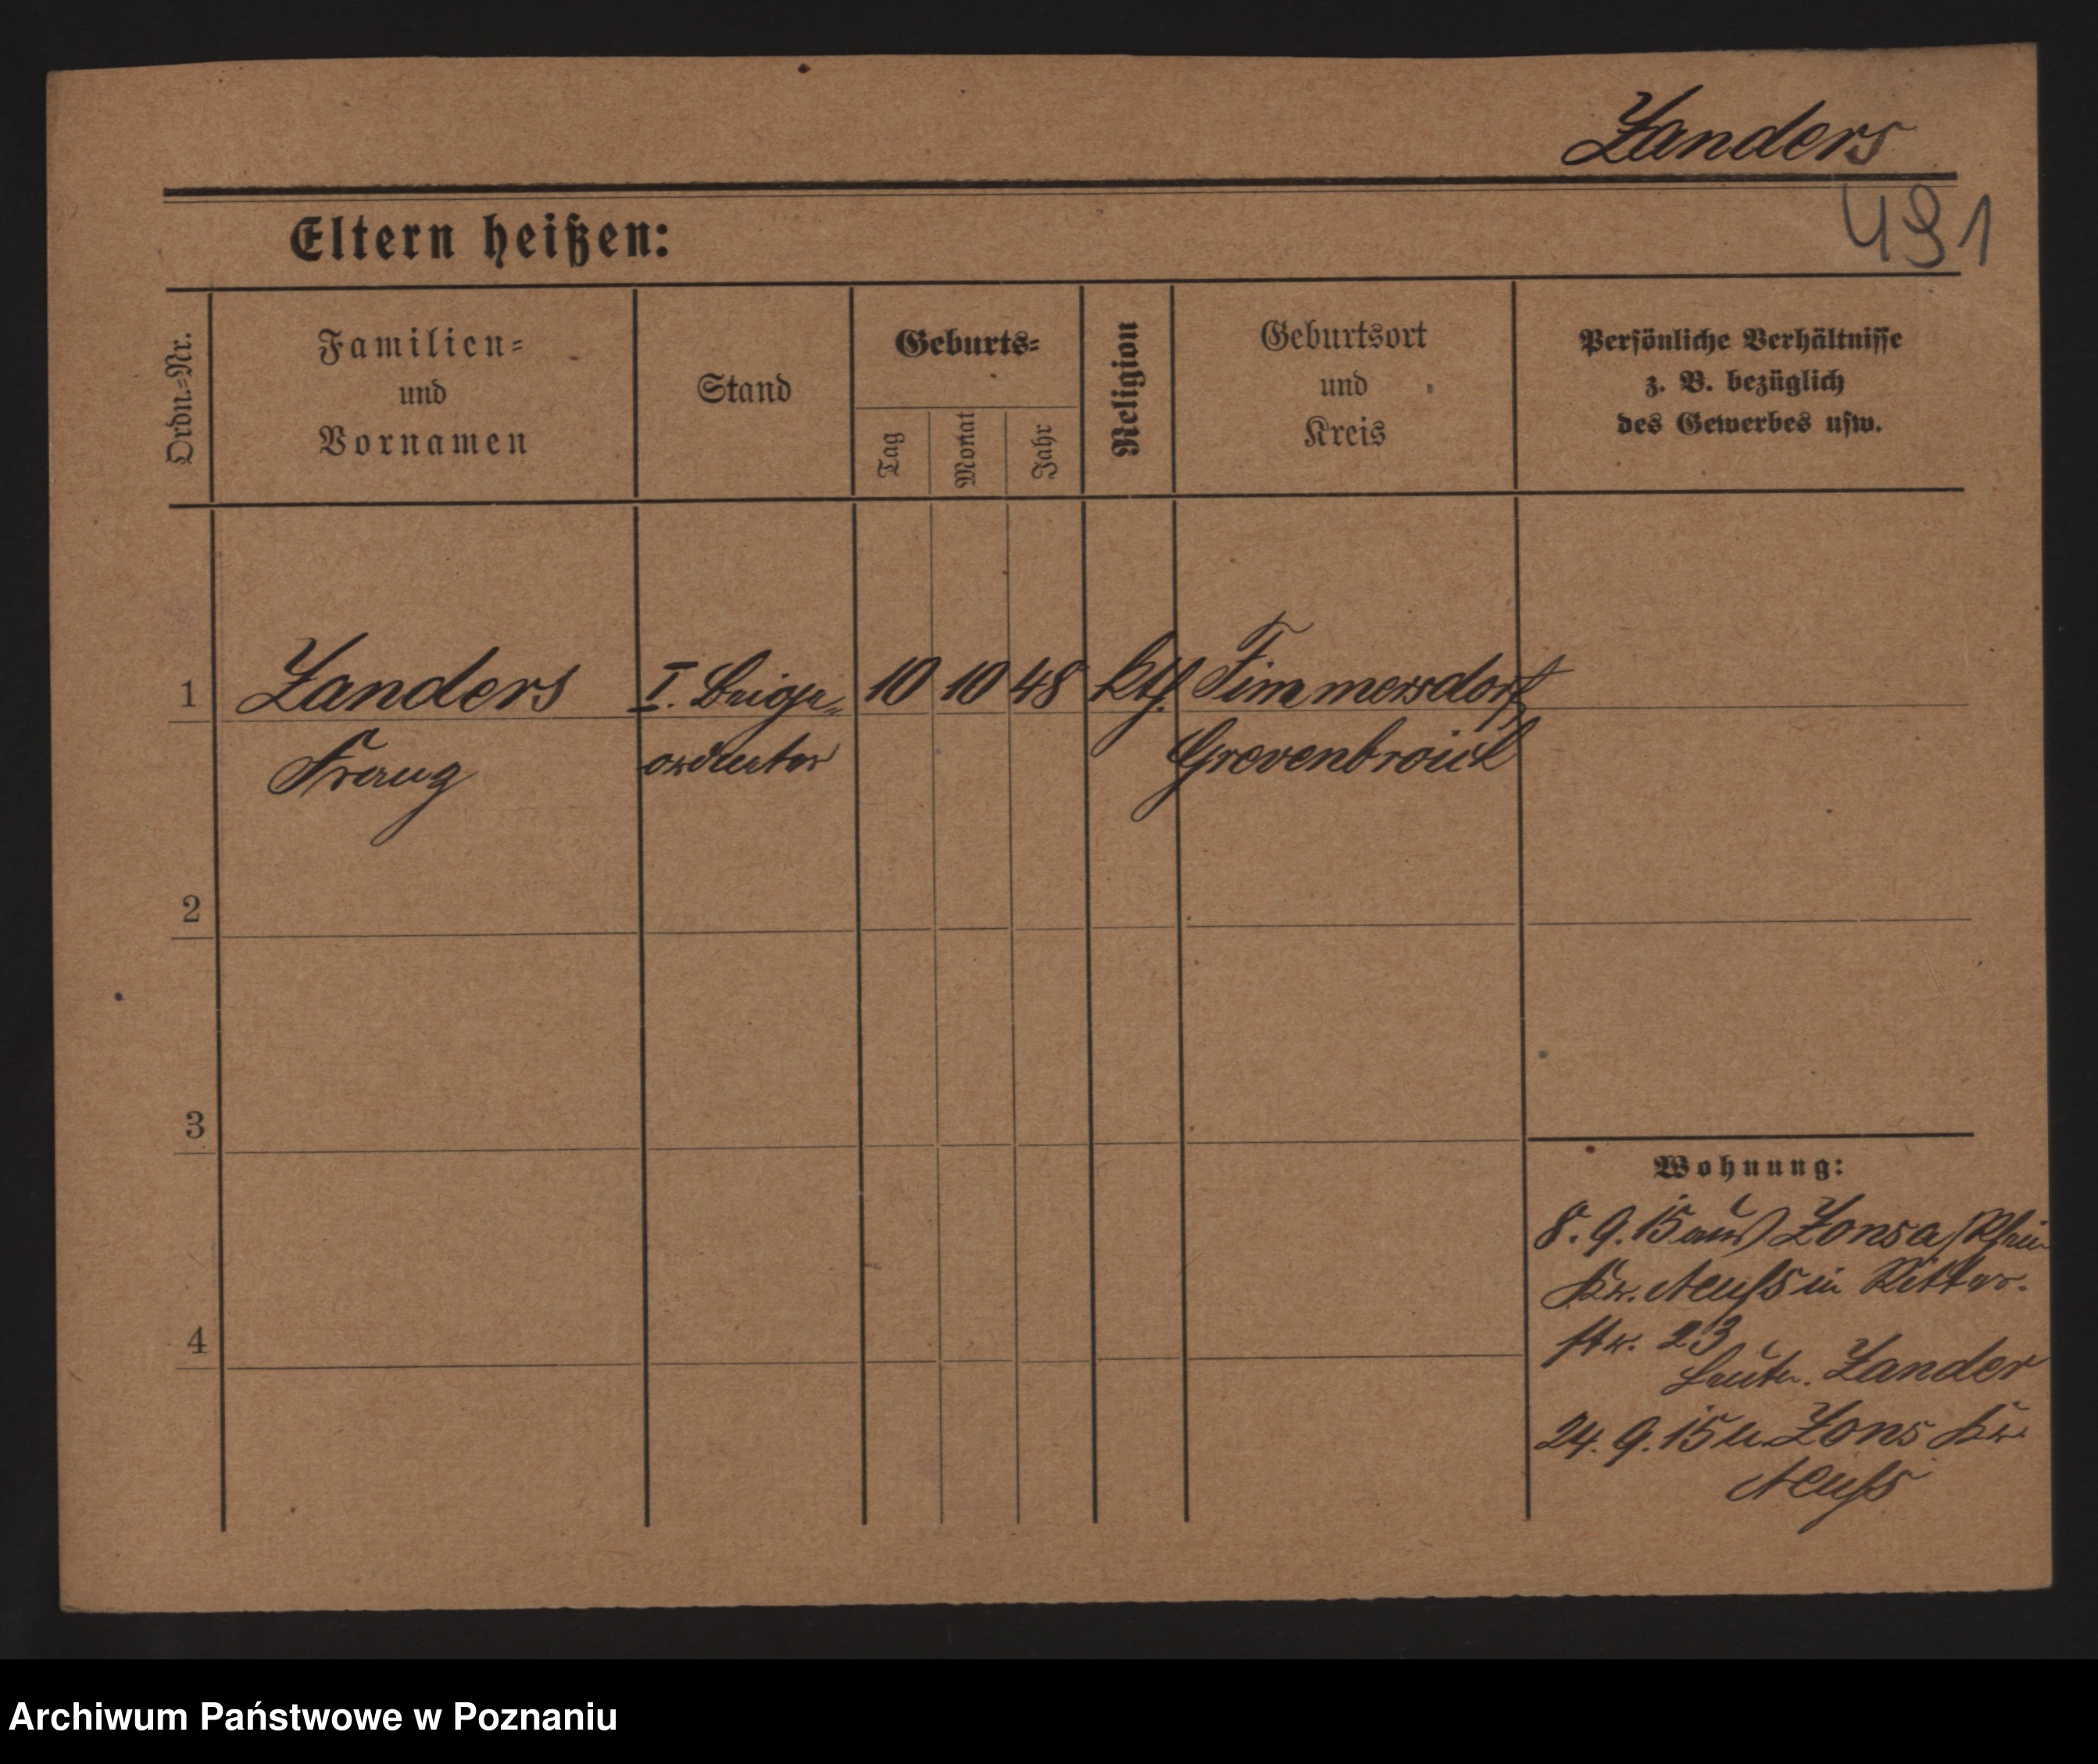 Zanders
491
Eltern heißen:
Ordn.=Nr.
Familien=
und
Vornamen
Stand
Geburts=
Tag
Monat
Jahr
Religion
Geburtsort
und
Kreis
Persönliche Verhältnisse
z. B. bezüglich
des Gewerbes usw.
1
Zanders I. Beige= 10 10 48 kth. Fimmersdorf
Franz ordneter Grevenbroich
2
3
4
Wohnung:
8. 9. 15 aus Zons a/Rhein
Kr. Neuß in Ritter=
str. 23
Leutn. Zander
24. 9. 15 n. Zons Kr.
Neuß
Archiwum Państwowe w Poznaniu